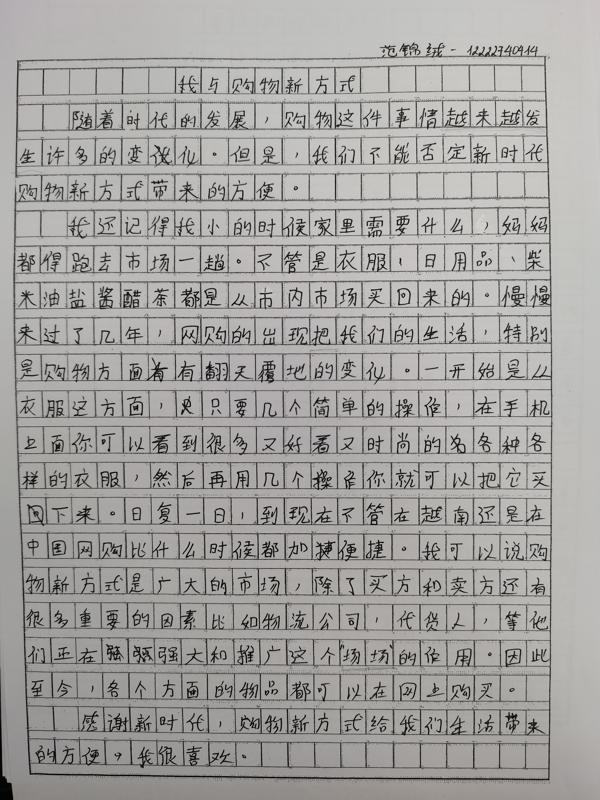 范锦绒 - 12222740414
我与购物新方式
随着时代的发展，购物这件事情越来越发
生许多的变化。但是，我们不能否定新时代
购物新方式带来的方便。
我还记得我小的时候家里需要什么，妈妈
都得跑去市场一趟。不管是衣服，日用品，柴
米油盐酱醋茶都是从市内市场买回来的。慢慢
来过了几年，网购的出现把我们的生活，特别
是购物方面着有翻天覆地的变化。一开始是从
衣服这方面，只要几个简单的操作，在手机
上面你可以看到很多又好看又时尚的各种各
样的衣服，然后再用几个操作你就可以把它买
下来。日复一日，到现在不管在越南还是在
中国网购比什么时候都加捷便捷。我可以说购
物新方式是广大的市场，除了买方和卖方还有
很多重要的因素比如物流公司，代货人，等他
们正在强大和推广这个"场场"的作用。因此
至今，各个方面的物品都可以在网上购买。
感谢新时代，购物新方式给我们生活带来
的方便，我很喜欢。